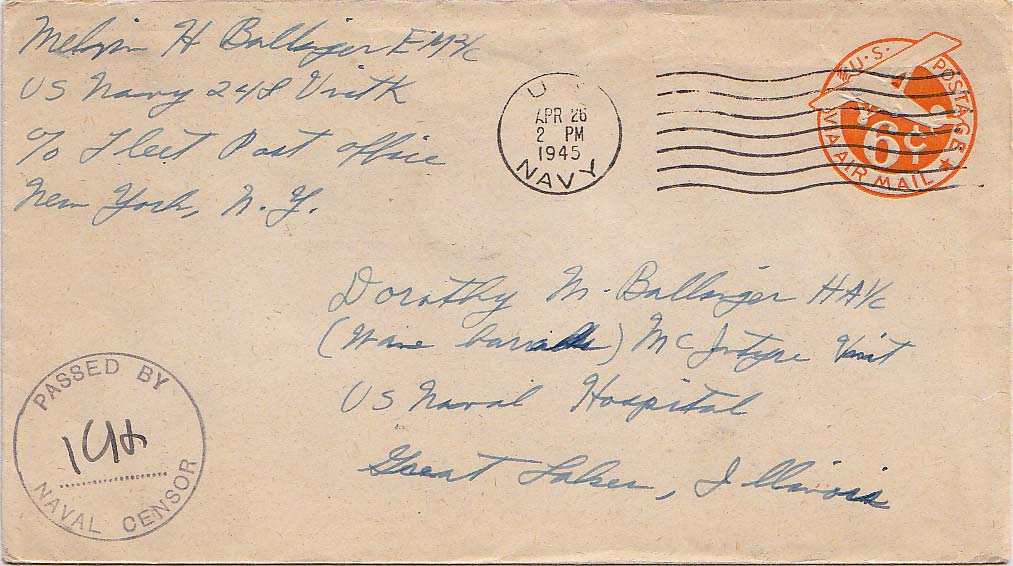 Melvin H Ballinger EM2/c
US Navy 248 Unit K
c/o Fleet Post office
New York, N.Y.
U.
APR 26
2 PM
1945
NAVY
U.S. POSTAGE
6¢
VIA AIR MAIL
Dorothy M. Ballinger HA1/c
(Wave barracks) McIntyre Unit
US Naval Hospital
Great Lakes, Illinois
PASSED BY
NAVAL CENSOR